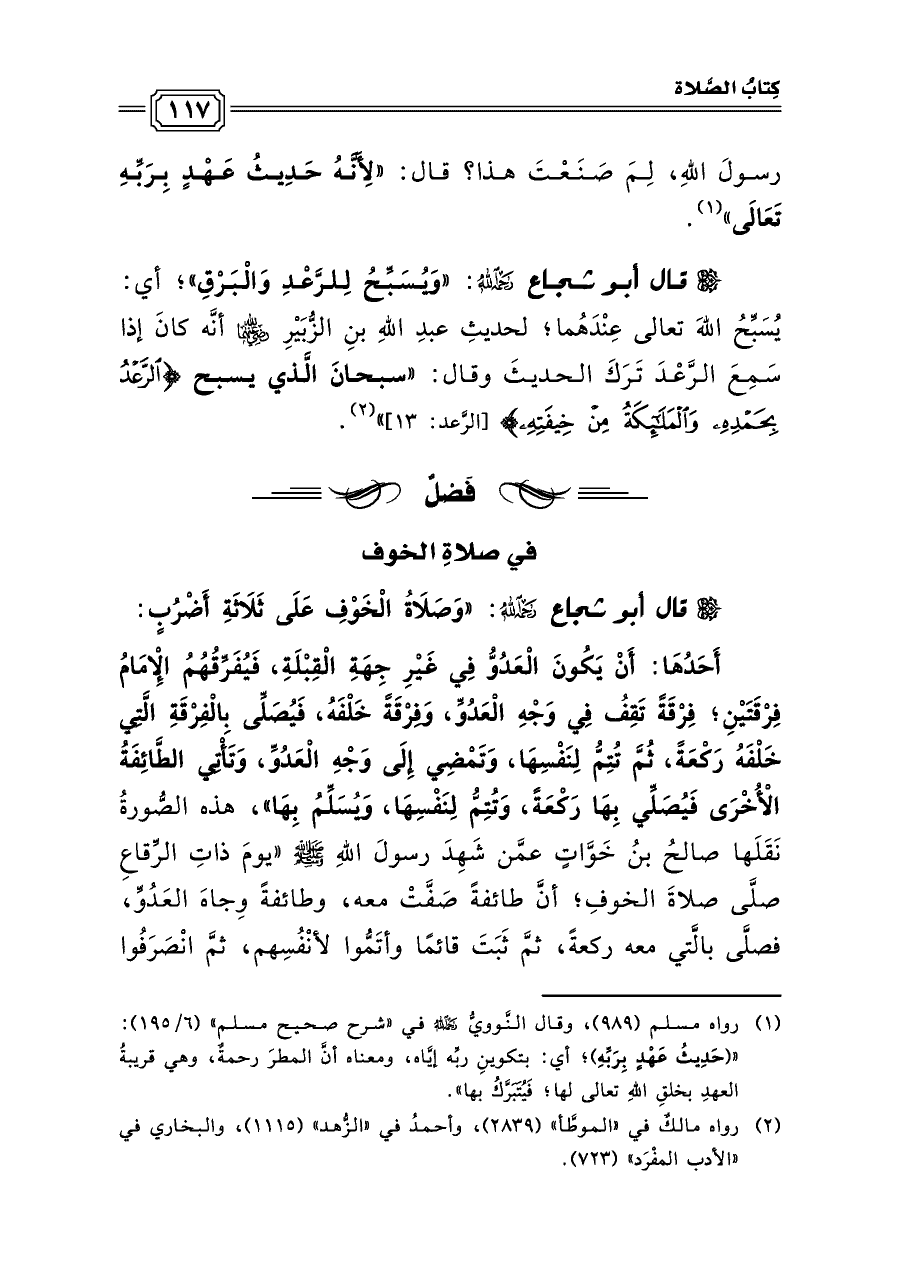 كِتابُ الصَّلاة
١١٧
رسولَ اللهِ، لِمَ صَنَعْتَ هذا؟ قال: «لِأَنَّهُ حَدِيثُ عَهْدٍ بِرَبِّهِ
تَعَالَى»(١).
قال أبو شجاع رحمه الله: «وَيُسَبِّحُ لِلرَّعْدِ وَالْبَرْقِ»؛ أي:
يُسَبِّحُ اللهَ تعالى عِنْدَهُما؛ لحديثِ عبدِ اللهِ بنِ الزُّبَيْرِ رضي الله عنهما أنَّه كانَ إذا
سَمِعَ الرَّعْدَ تَرَكَ الحديثَ وقال: «سبحانَ الَّذي يسبح ﴿ٱلرَّعۡدُ
بِحَمۡدِهِۦ وَٱلۡمَلَٰٓئِكَةُ مِنۡ خِيفَتِهِۦ﴾ [الرَّعد: ١٣]»(٢).
فَصْلٌ
في صلاةِ الخوف
قال أبو شجاع رحمه الله: «وَصَلَاةُ الْخَوْفِ عَلَى ثَلَاثَةِ أَضْرُبٍ:
أَحَدُهَا: أَنْ يَكُونَ الْعَدُوُّ فِي غَيْرِ جِهَةِ الْقِبْلَةِ، فَيُفَرِّقُهُمُ الْإِمَامُ
فِرْقَتَيْنِ؛ فِرْقَةً تَقِفُ فِي وَجْهِ الْعَدُوِّ، وَفِرْقَةً خَلْفَهُ، فَيُصَلِّى بِالْفِرْقَةِ الَّتِي
خَلْفَهُ رَكْعَةً، ثُمَّ تُتِمُّ لِنَفْسِهَا، وَتَمْضِي إِلَى وَجْهِ الْعَدُوِّ، وَتَأْتِي الطَّائِفَةُ
الْأُخْرَى فَيُصَلِّي بِهَا رَكْعَةً، وَتُتِمُّ لِنَفْسِهَا، وَيُسَلِّمُ بِهَا»، هذه الصُّورةُ
نَقَلَها صالحُ بنُ خَوَّاتٍ عمَّن شَهِدَ رسولَ اللهِ ﷺ «يومَ ذاتِ الرِّقاعِ
صلَّى صلاةَ الخوفِ؛ أنَّ طائفةً صَفَّتْ معه، وطائفةً وِجاهَ العَدُوِّ،
فصلَّى بالَّتي معه ركعةً، ثمَّ ثَبَتَ قائمًا وأتَمُّوا لأنْفُسِهم، ثمَّ انْصَرَفُوا
(١) رواه مسلم (٩٨٩)، وقال النَّوويُّ رحمه الله في «شرح صحيح مسلم» (٦/ ١٩٥):
«(حَدِيثُ عَهْدٍ بِرَبِّهِ)؛ أي: بتكوينِ ربِّه إيَّاه، ومعناه أنَّ المطرَ رحمةٌ، وهي قريبةُ
العهدِ بخلقِ اللهِ تعالى لها؛ فَيُتَبَرَّكُ بها».
(٢) رواه مالكٌ في «الموطَّأ» (٢٨٣٩)، وأحمدُ في «الزُّهد» (١١١٥)، والبخاري في
«الأدب المفْرَد» (٧٢٣).